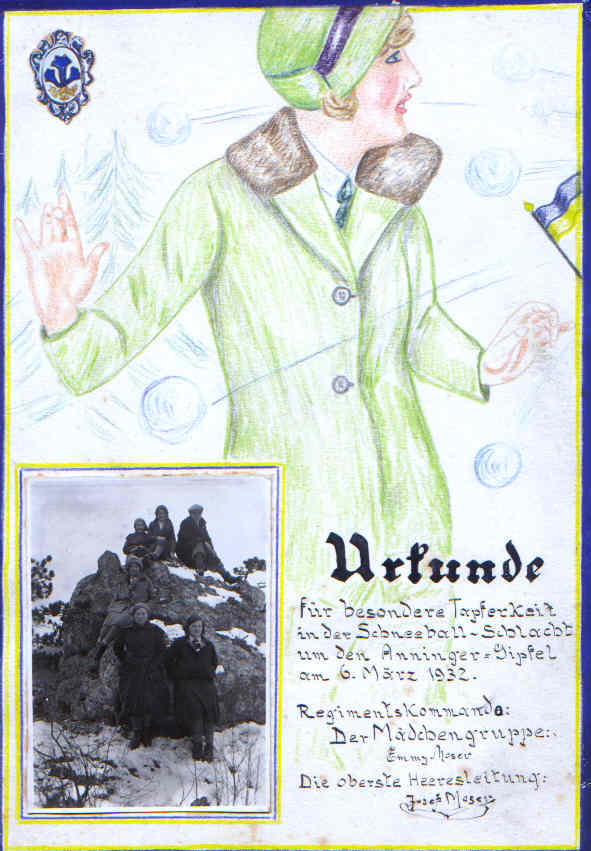 Urkunde
für besondere Tapferkeit
in der Schneeball-Schlacht
um den Anninger-Gipfel
am 6. März 1932.
Regimentskommando:
Der Mädchengruppe:
Emmy Moser
Die oberste Heeresleitung:
Josef Moser